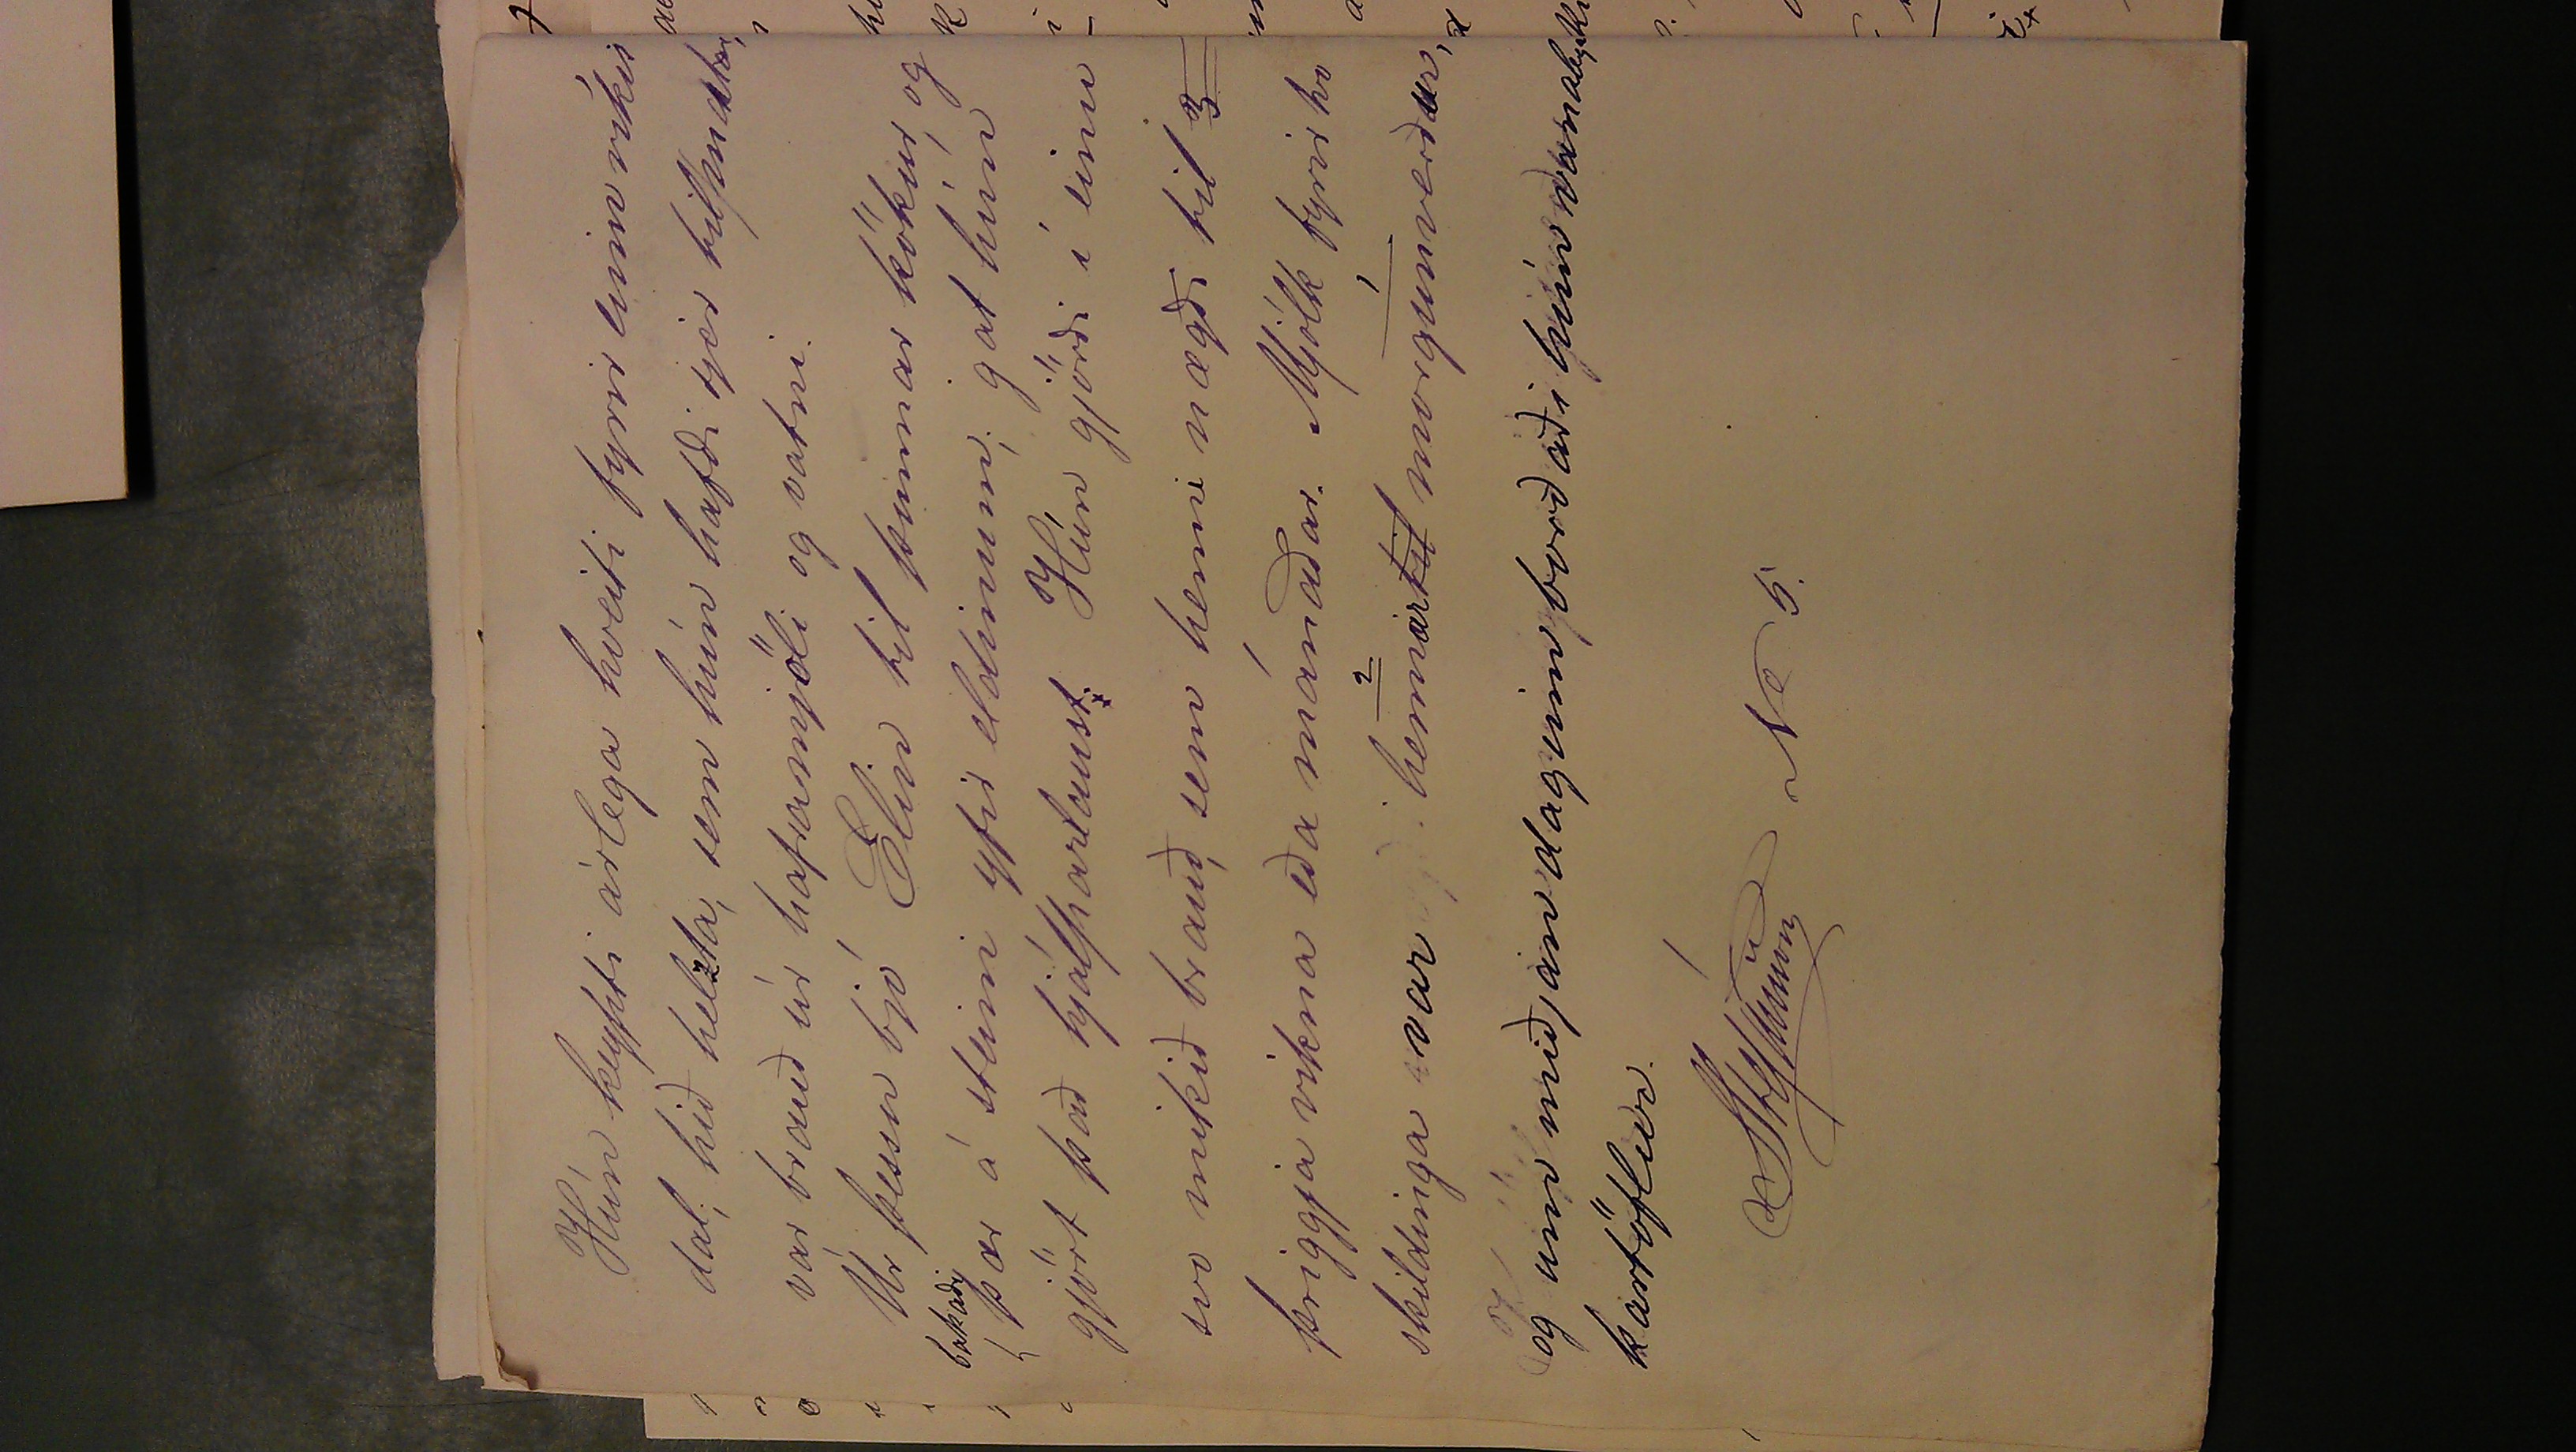 Hún keypti árlega hveiti fyrir einn ríkis
dal; hið helzta, sem hún hafði sjer tilfundar,
var brauð úr haframjöli og vatni.
Úr þessu bjó Elin til þunnar kökur, og
bakaði
þær á steini yfir eldinum; gat hún
gjört það hjálparlaust. Hún gjörði í einu
svo mikið brauð, sem henni nægði til 3
þriggja vikna eða mánaðar. Mjólk fyrir tvo
2 1
skildinga var henni ært til morgunverðar,
og um miðjan daginn borðaði hún vanalega
kartöflur.
No 5.